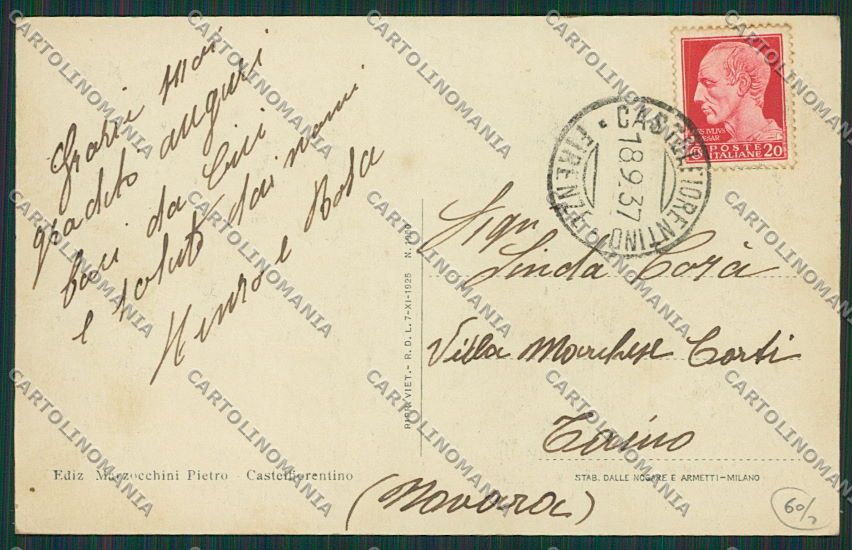 Grazie mai
gradito auguri
baci da Cici
e saluti dai nonni
e Rosa
CASTELFIORENTINO
18.9.37
FIRENZE
IVLIVS
CAESAR
POSTE
ITALIANE 20
Sigra
Linda Corà
Villa Marchese Corti
Taino
(Novara)
RIPR. VIET. - R. D. L. 7-XI-1925 N.
Ediz Marzocchini Pietro - Castelfiorentino
STAB. DALLE NOGARE E ARMETTI-MILANO
60/
CARTOLINOMANIA